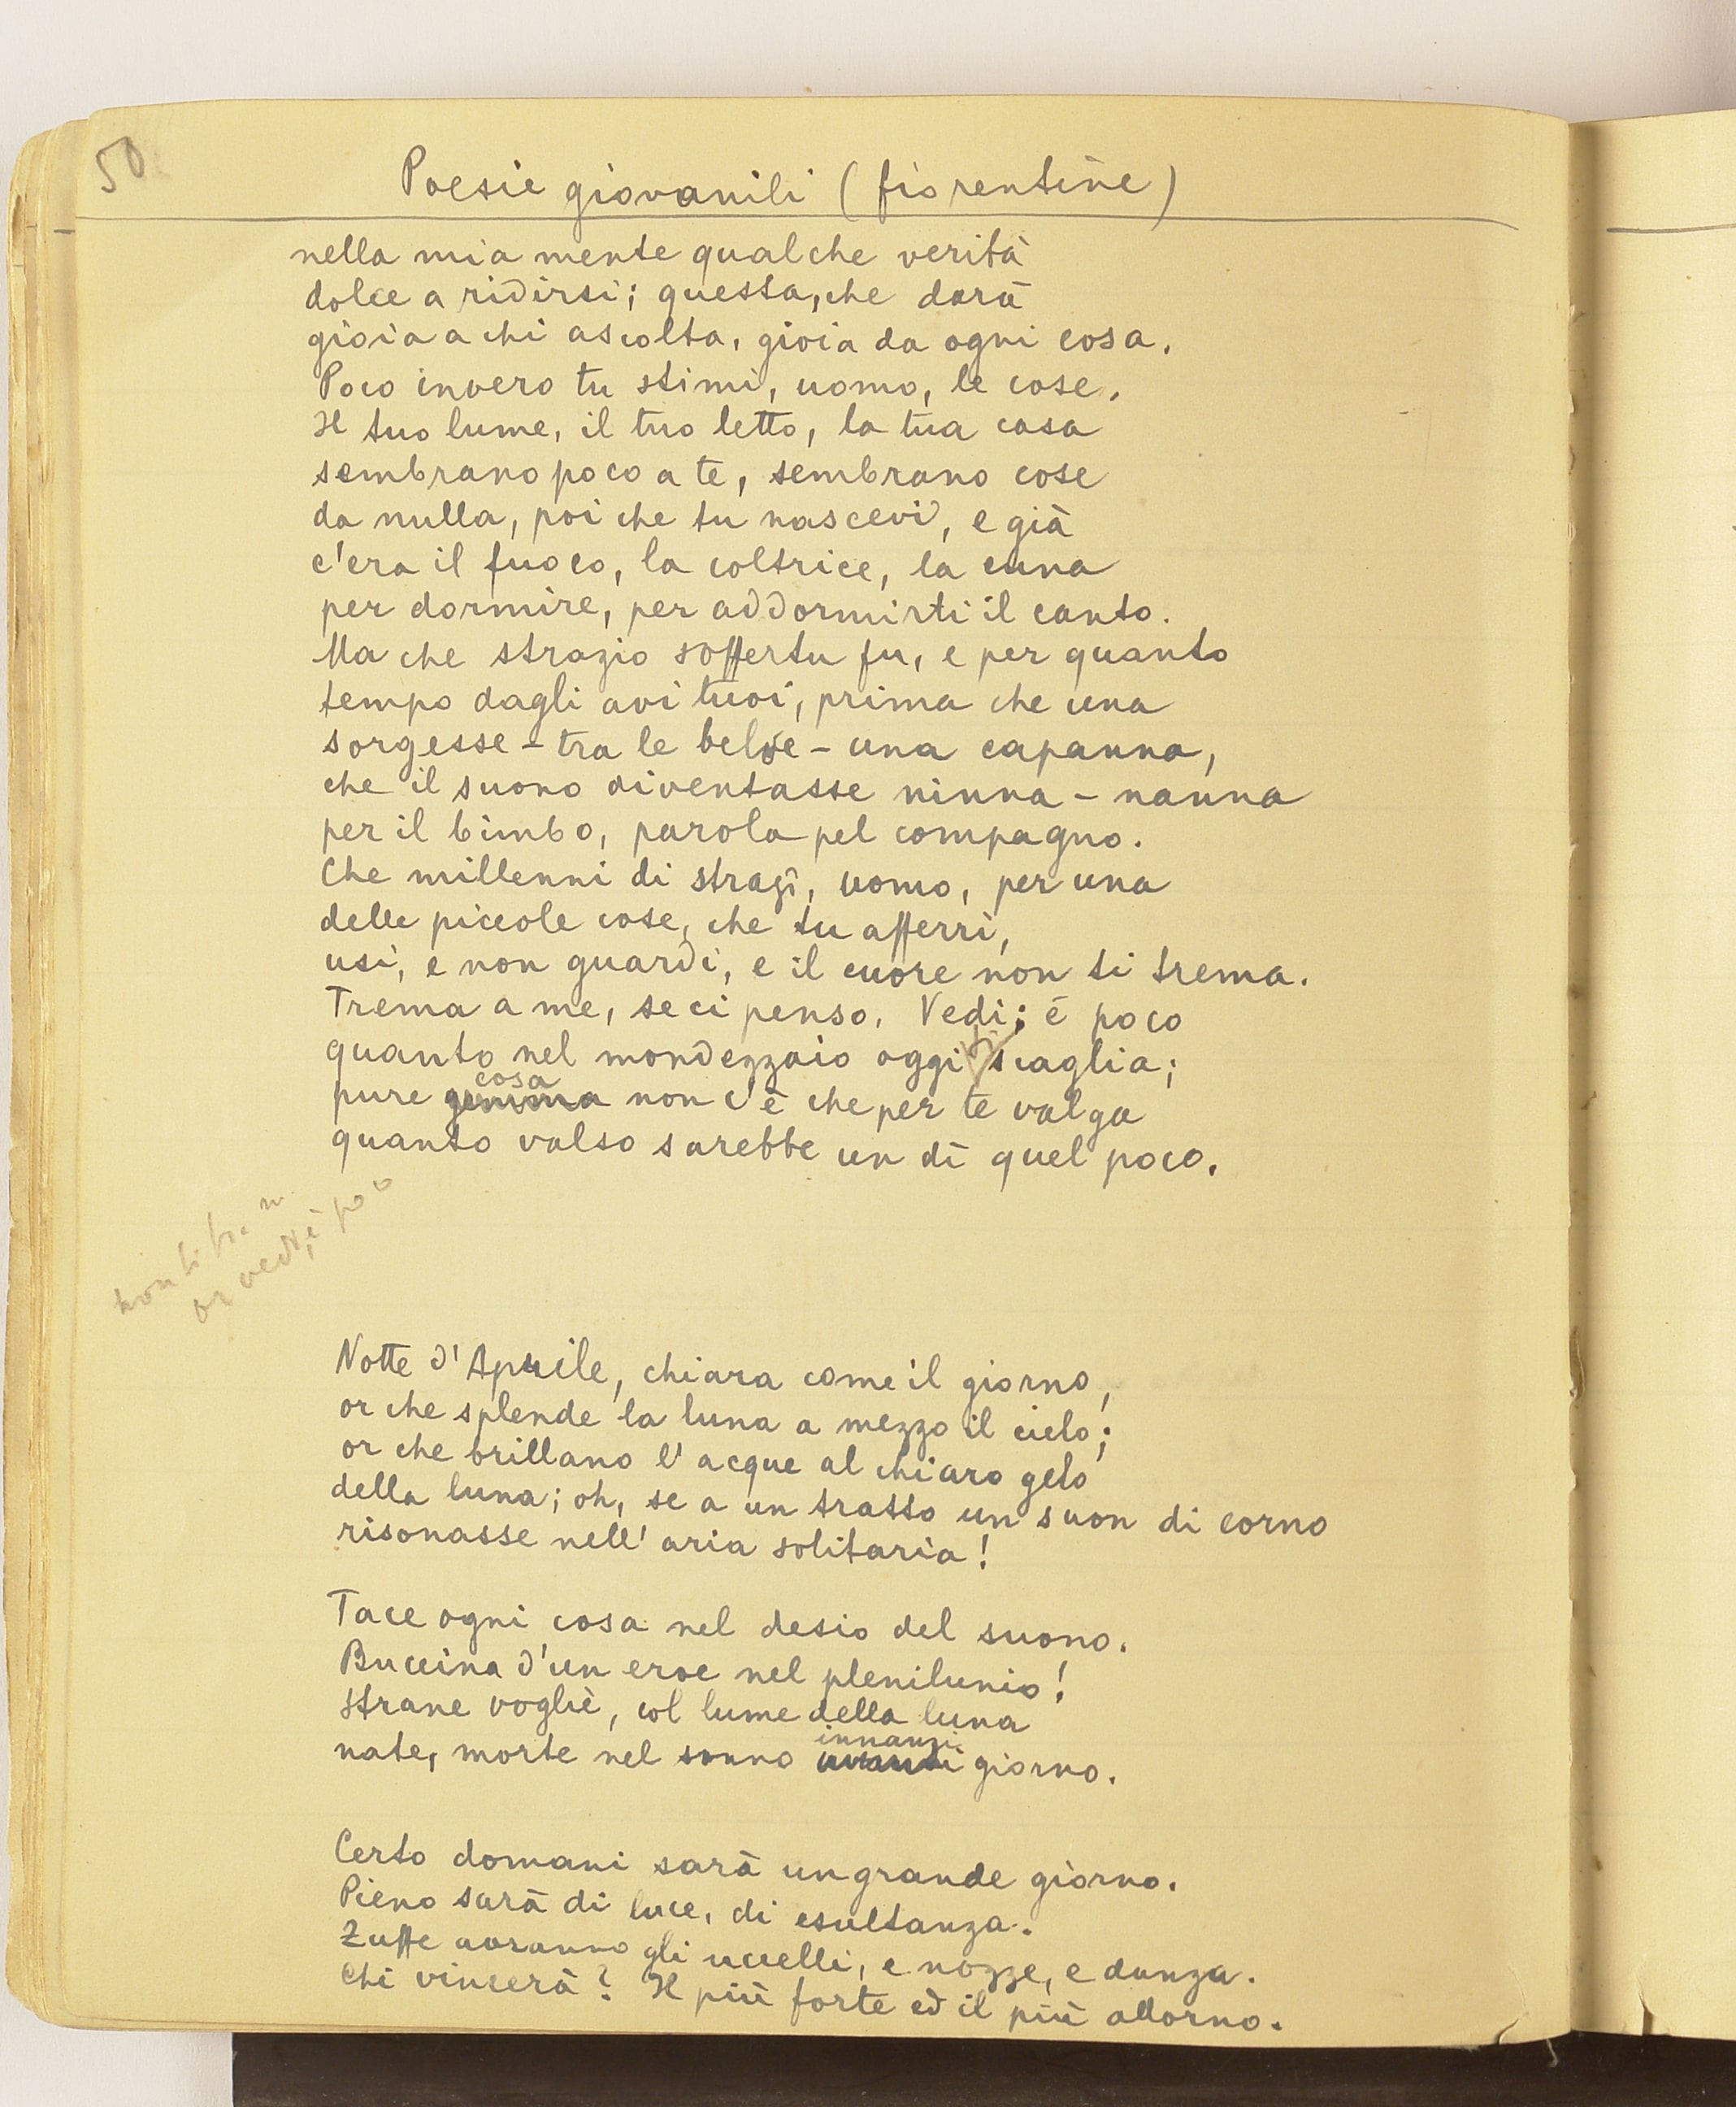 50
Poesie giovanili (fiorentine)
nella mia mente qualche verità
dolce a ridirsi; questa, che darà
gioia a chi ascolta, gioia da ogni cosa.
Poco invero tu stimi, uomo, le cose.
Il tuo lume, il tuo letto, la tua casa
sembrano poco a te, sembrano cose
da nulla, poi che tu nascevi, e già
c'era il fuoco, la coltrice, la cuna
per dormire, per addormirti il canto.
Ma che strazio soffertu fu, e per quanto
tempo dagli avi tuoi, prima che una
sorgesse - tra le belve - una capanna,
che il suono diventasse ninna - nanna
per il bimbo, parola pel compagno.
Che millenni di stragi, uomo, per una
delle piccole cose, che tu afferri,
usi, e non guardi, e il cuore non ti trema.
Trema a me, se ci penso. Vedi; è poco
quanto nel mondezzaio oggi si scaglia;
cosa
pure gemma non c'è che per te valga
quanto valso sarebbe un dì quel poco.
non ti
or vedi, è poco
Notte d'Aprile, chiara come il giorno,
or che splende la luna a mezzo il cielo;
or che brillano l'acque al chiaro gelo
della luna; oh, se a un tratto un suon di corno
risonasse nell'aria solitaria!
Tace ogni cosa nel desio del suono.
Buccina d'un eroe nel plenilunio!
strane voglie, col lume della luna
innanzi
nate, morte nel sonno avanti giorno.
Certo domani sarà un grande giorno.
Pieno sarà di luce, di esultanza.
Zuffe avranno gli uccelli, e nozze, e danza.
Chi vincerà? Il più forte ed il più adorno.